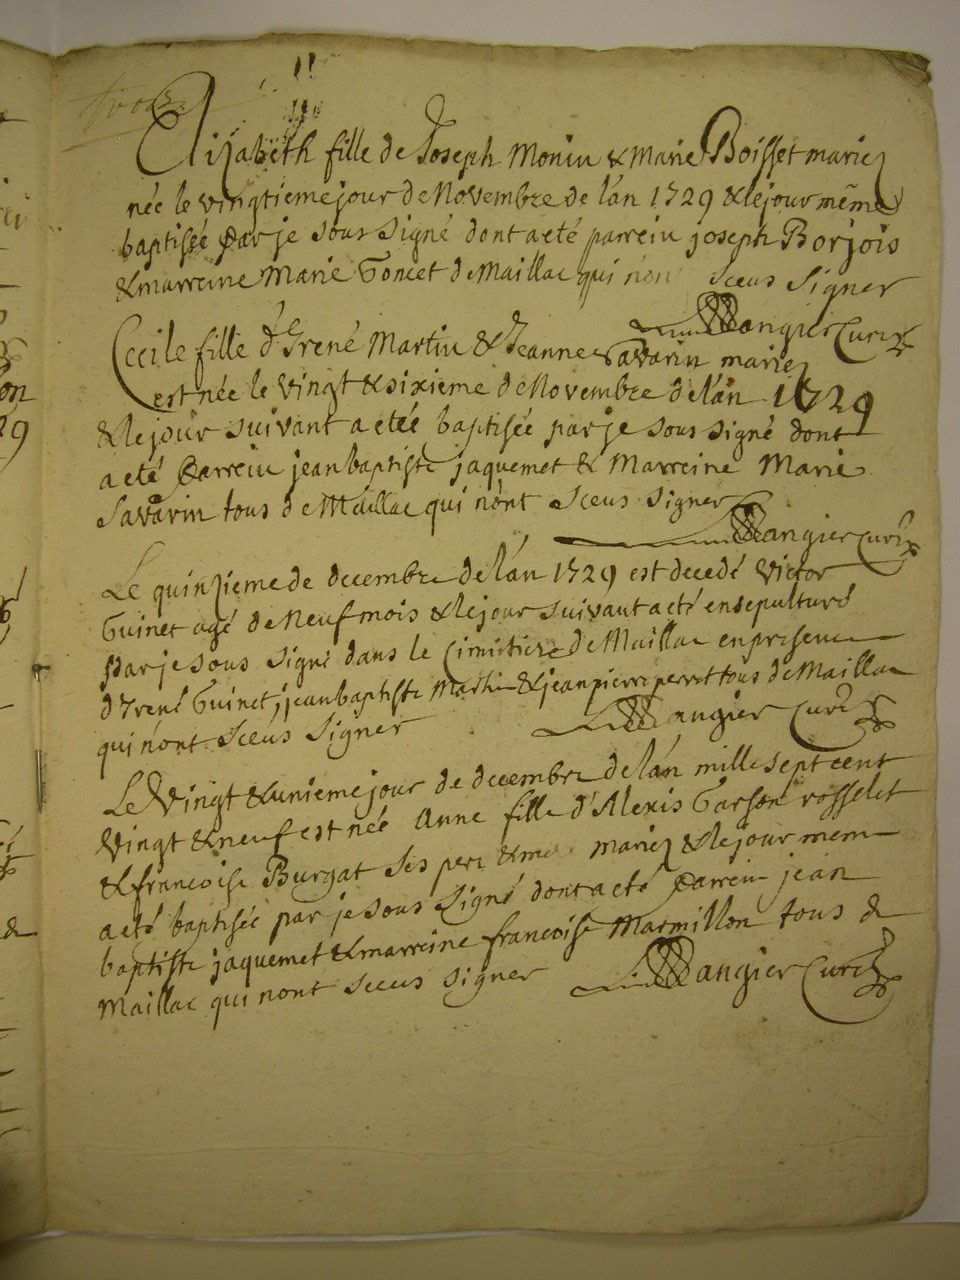 Elizabeth fille de Joseph Monin & Marie Boisset mariez
née le vingtieme jour de Novembre de l'an 1729 & le jour méme
baptisée par je sous signé dont a eté parrein joseph Borjois
& marreine Marie Goncet de Maillac qui n'on sceus signer
Mangier Curé
Cecile fille d'Irené Martin & Jeanne Savarin mariez
est née le vingt & sixieme de Novembre de l'an 1729
& le jour suivant a etée baptisée par je sous signé dont
a eté parrein jean baptiste jaquemet & Marreine Marie
Savarin tous de Maillac qui n'ont sceus signer
Mangier Curé
Le quinzieme de decembre de l'an 1729 est decedé victor
Guinet agé de Neuf mois & le jour suivant a eté ensepulturé
par je sous signé dans le Cimitiere de Maillac en presence
d'Irené Guinet, jean baptiste Martin & jean pierre perret tous de Maillac
qui n'ont sceus signer
Mangier Curé
Le Vingt & unieme jour de decembre de l'an mille sept cent
Vingt & neuf est née Anne fille d'Alexis Garson rosselet
& francoise Burgat ses pere & me mariez & le jour meme
a eté baptisée par je sous signé dont a eté parrein jean
baptiste jaquemet & marreine francoise Marmillon tous de
Maillac qui nont sceus signer
Mangier Curé